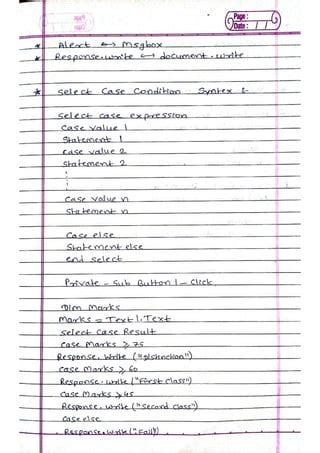 Page:
Date: / /
* Alert ↔ Msgbox
* Response.write ↔ document.write
* select Case Condition Syntex :-
select case expression
case value 1
Statement 1
case value 2
statement 2
case value n
statement n
Case else
Statement else
end select
Private - Sub Button 1 - Click
Dim Marks
Marks = Text 1. Text
select case Result
case Marks ≥ 75
Response. write ("Distinction")
case Marks ≥ 60
Response. write ("First class")
case Marks ≥ 45
Response. write ("second class")
case else
Response. write (": Fail")